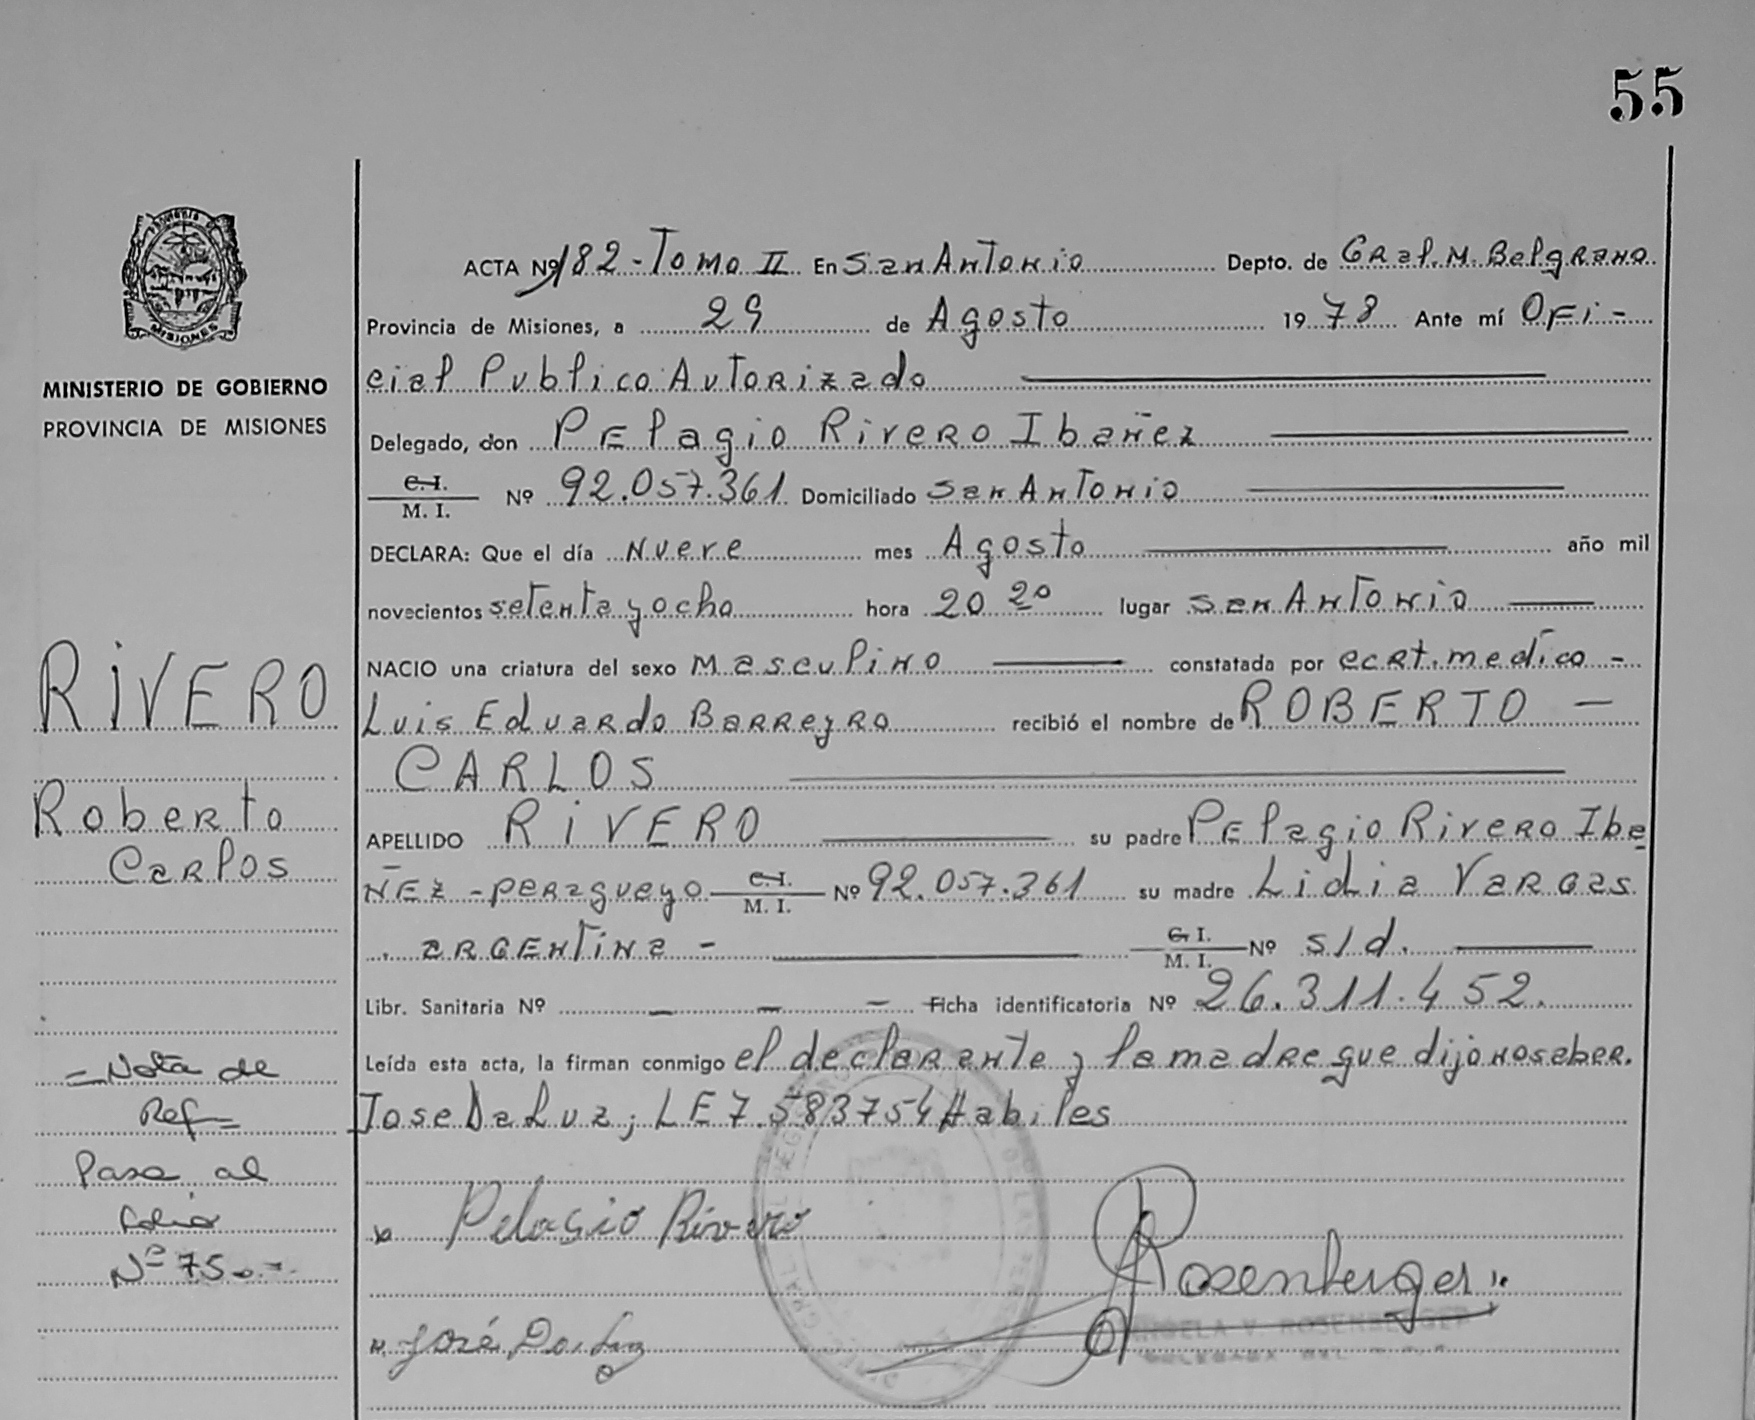 55
MISIONES
MINISTERIO DE GOBIERNO
PROVINCIA DE MISIONES
RIVERO
Roberto
Carlos
= Nota de
Ref =
Pasa al
folio
Nº 75
ACTA Nº 182 - Tomo II En San Antonio Depto. de Gral. M. Belgrano
Provincia de Misiones, a 29 de Agosto 1978 Ante mí Ofi-
cial Publico Autorizado
Delegado, don Pelagio Rivero Ibañez
C.I.
M. I. Nº 92.057.361 Domiciliado San Antonio
DECLARA: Que el día Nueve mes Agosto año mil
novecientos setenta y ocho hora 20 20 lugar San Antonio
NACIO una criatura del sexo Masculino constatada por cert. medico -
Luis Eduardo Barreyro recibió el nombre de ROBERTO -
CARLOS
APELLIDO RIVERO su padre Pelagio Rivero Iba
ñez - paraguayo C.I. M. I. Nº 92.057.361 su madre Lidia Vargas
argentina - C. I. M. I. Nº s/d.
Libr. Sanitaria Nº - - - Ficha identificatoria Nº 26.311.452.
Leída esta acta, la firman conmigo el declarante y la madre que dijo no saber.
Jose Da Luz; LE 7.583754 Habiles
Pelagio Rivero
Rosenberger
José Da Luz
ANGELA V. ROSENBERGER